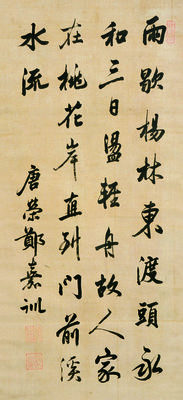 雨歇楊林東渡頭永
和三日盪輕舟故人家
在桃花岸直到門前溪
水流
唐榮鄭嘉訓